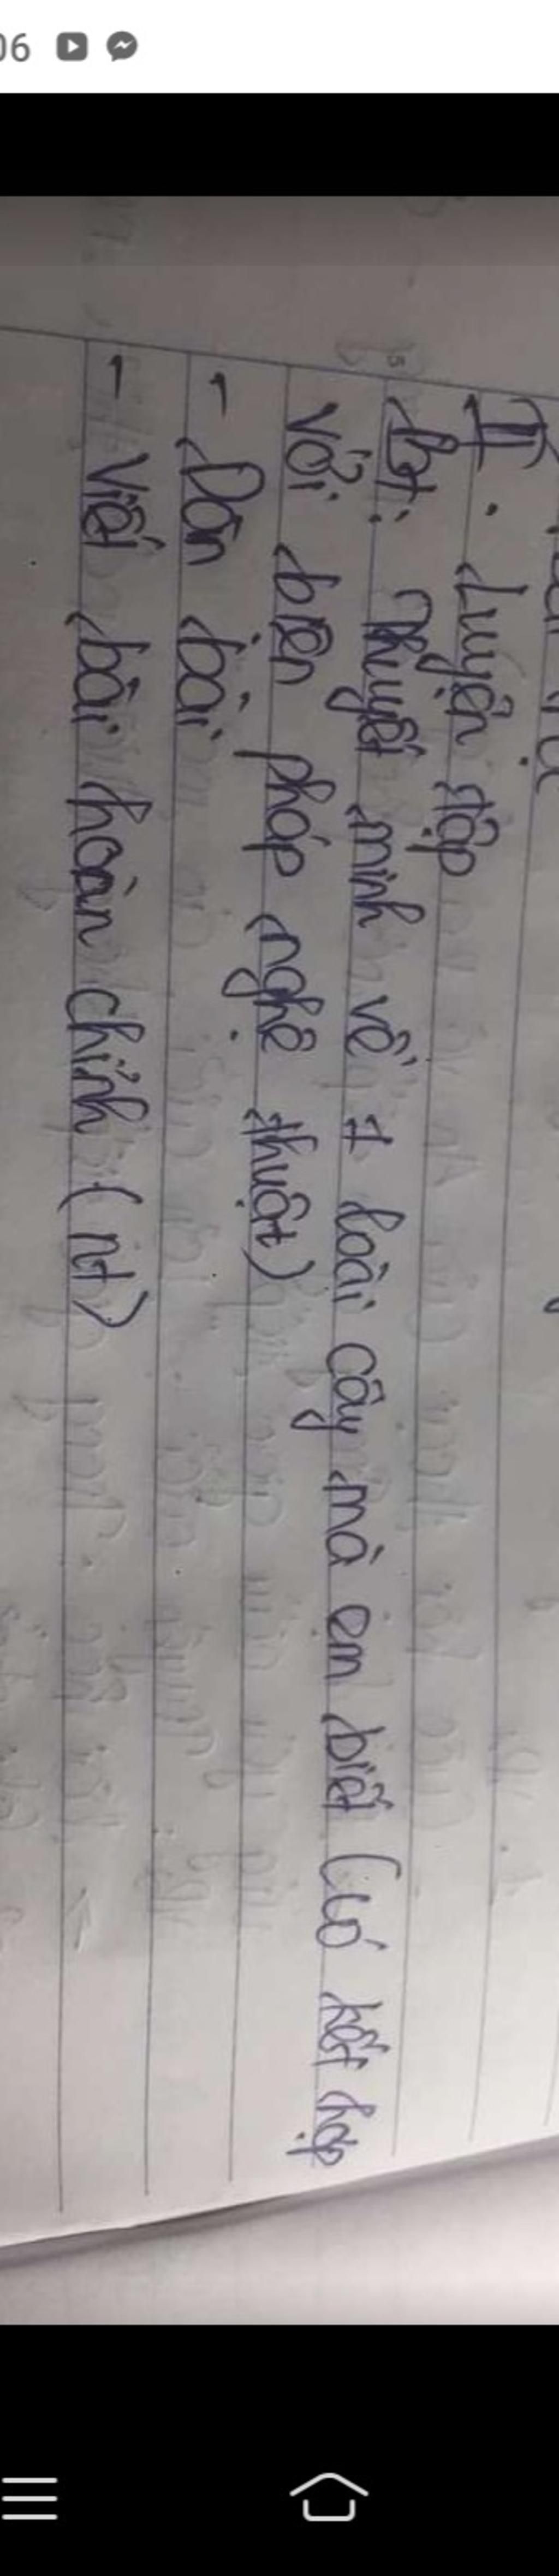 06
II. Luyện tập
bt: Thuyết minh về 1 loài cây mà em biết (có kết hợp
với biện pháp nghệ thuật)
- Dàn bài
- Viết bài hoàn chỉnh (nt)